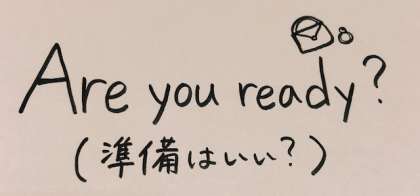 Are you ready?
(準備はいい?)